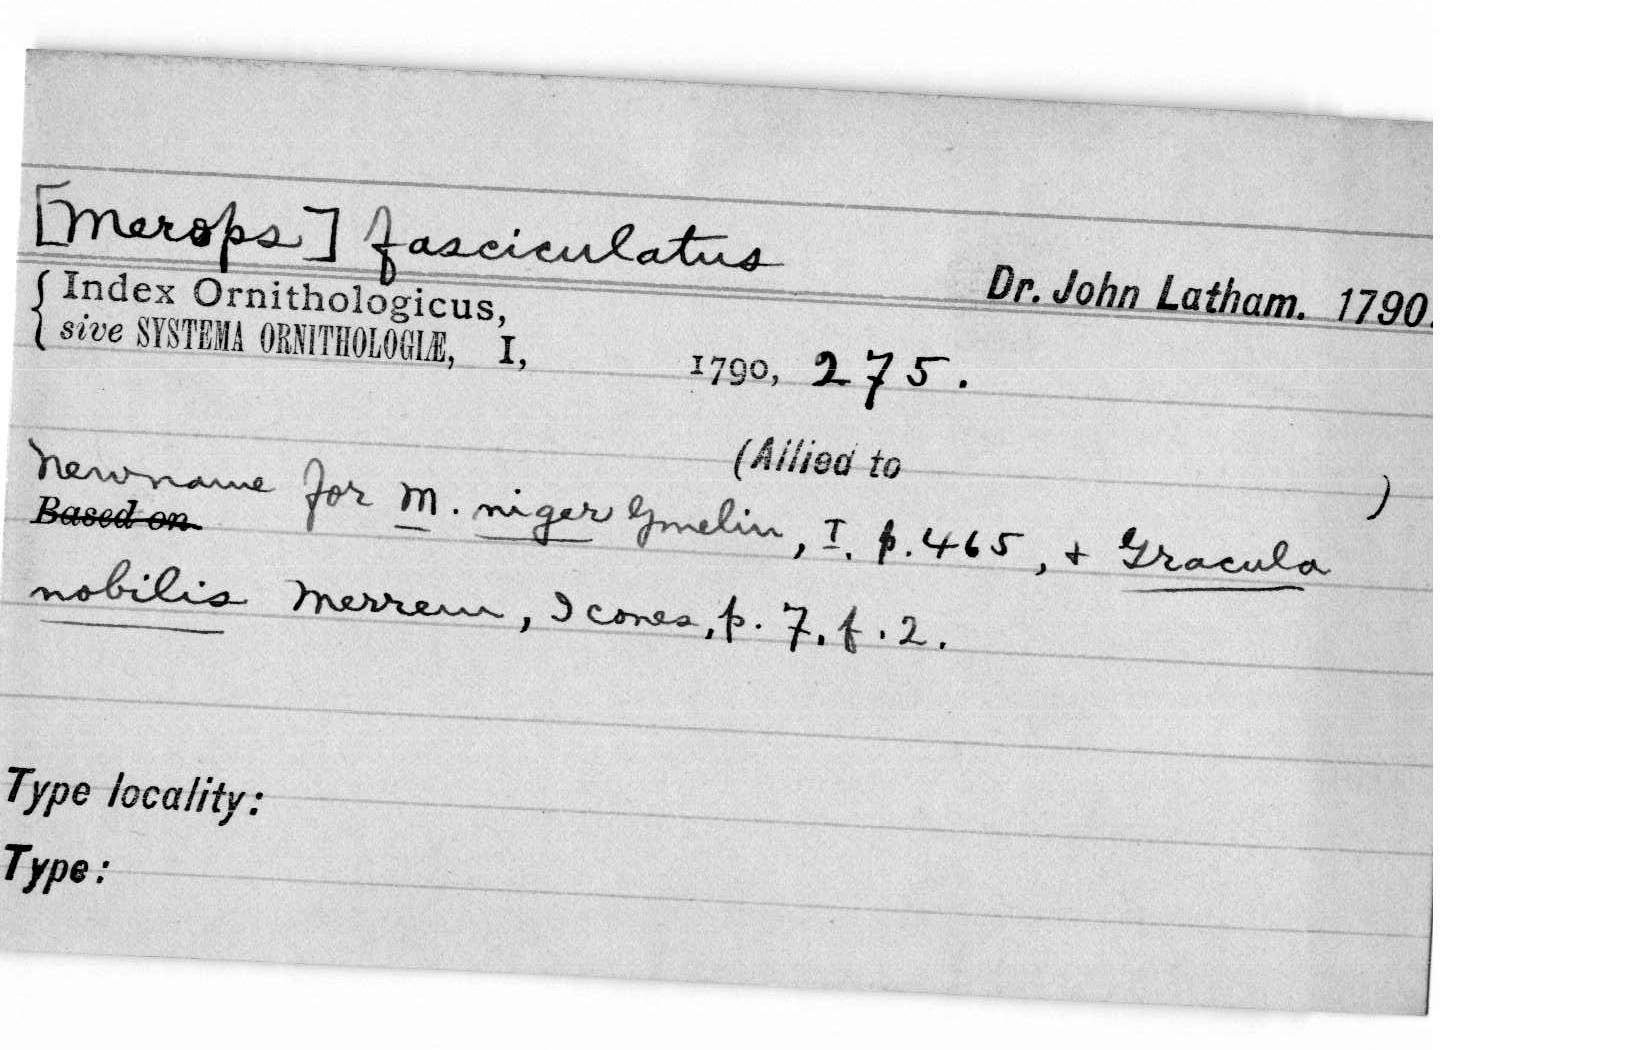 [Merops] fasciculatus
Dr. John Latham. 1790.
{ Index Ornithologicus,
sive SYSTEMA ORNITHOLOGIÆ, I, 1790, 275.
(Allied to )
New name for M. niger Gmelin, I. p. 465, + Gracula
Based on
nobilis Merrem, Icones, p. 7. f. 2.
Type locality:
Type: